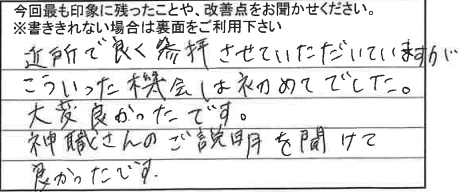 今回最も印象に残ったことや、改善点をお聞かせください。
※書ききれない場合は裏面をご利用下さい
近所で良く参拝させていただいていますが
こういった機会は初めてでした。
大変良かったです。
神職さんのご説明を聞けて
良かったです.